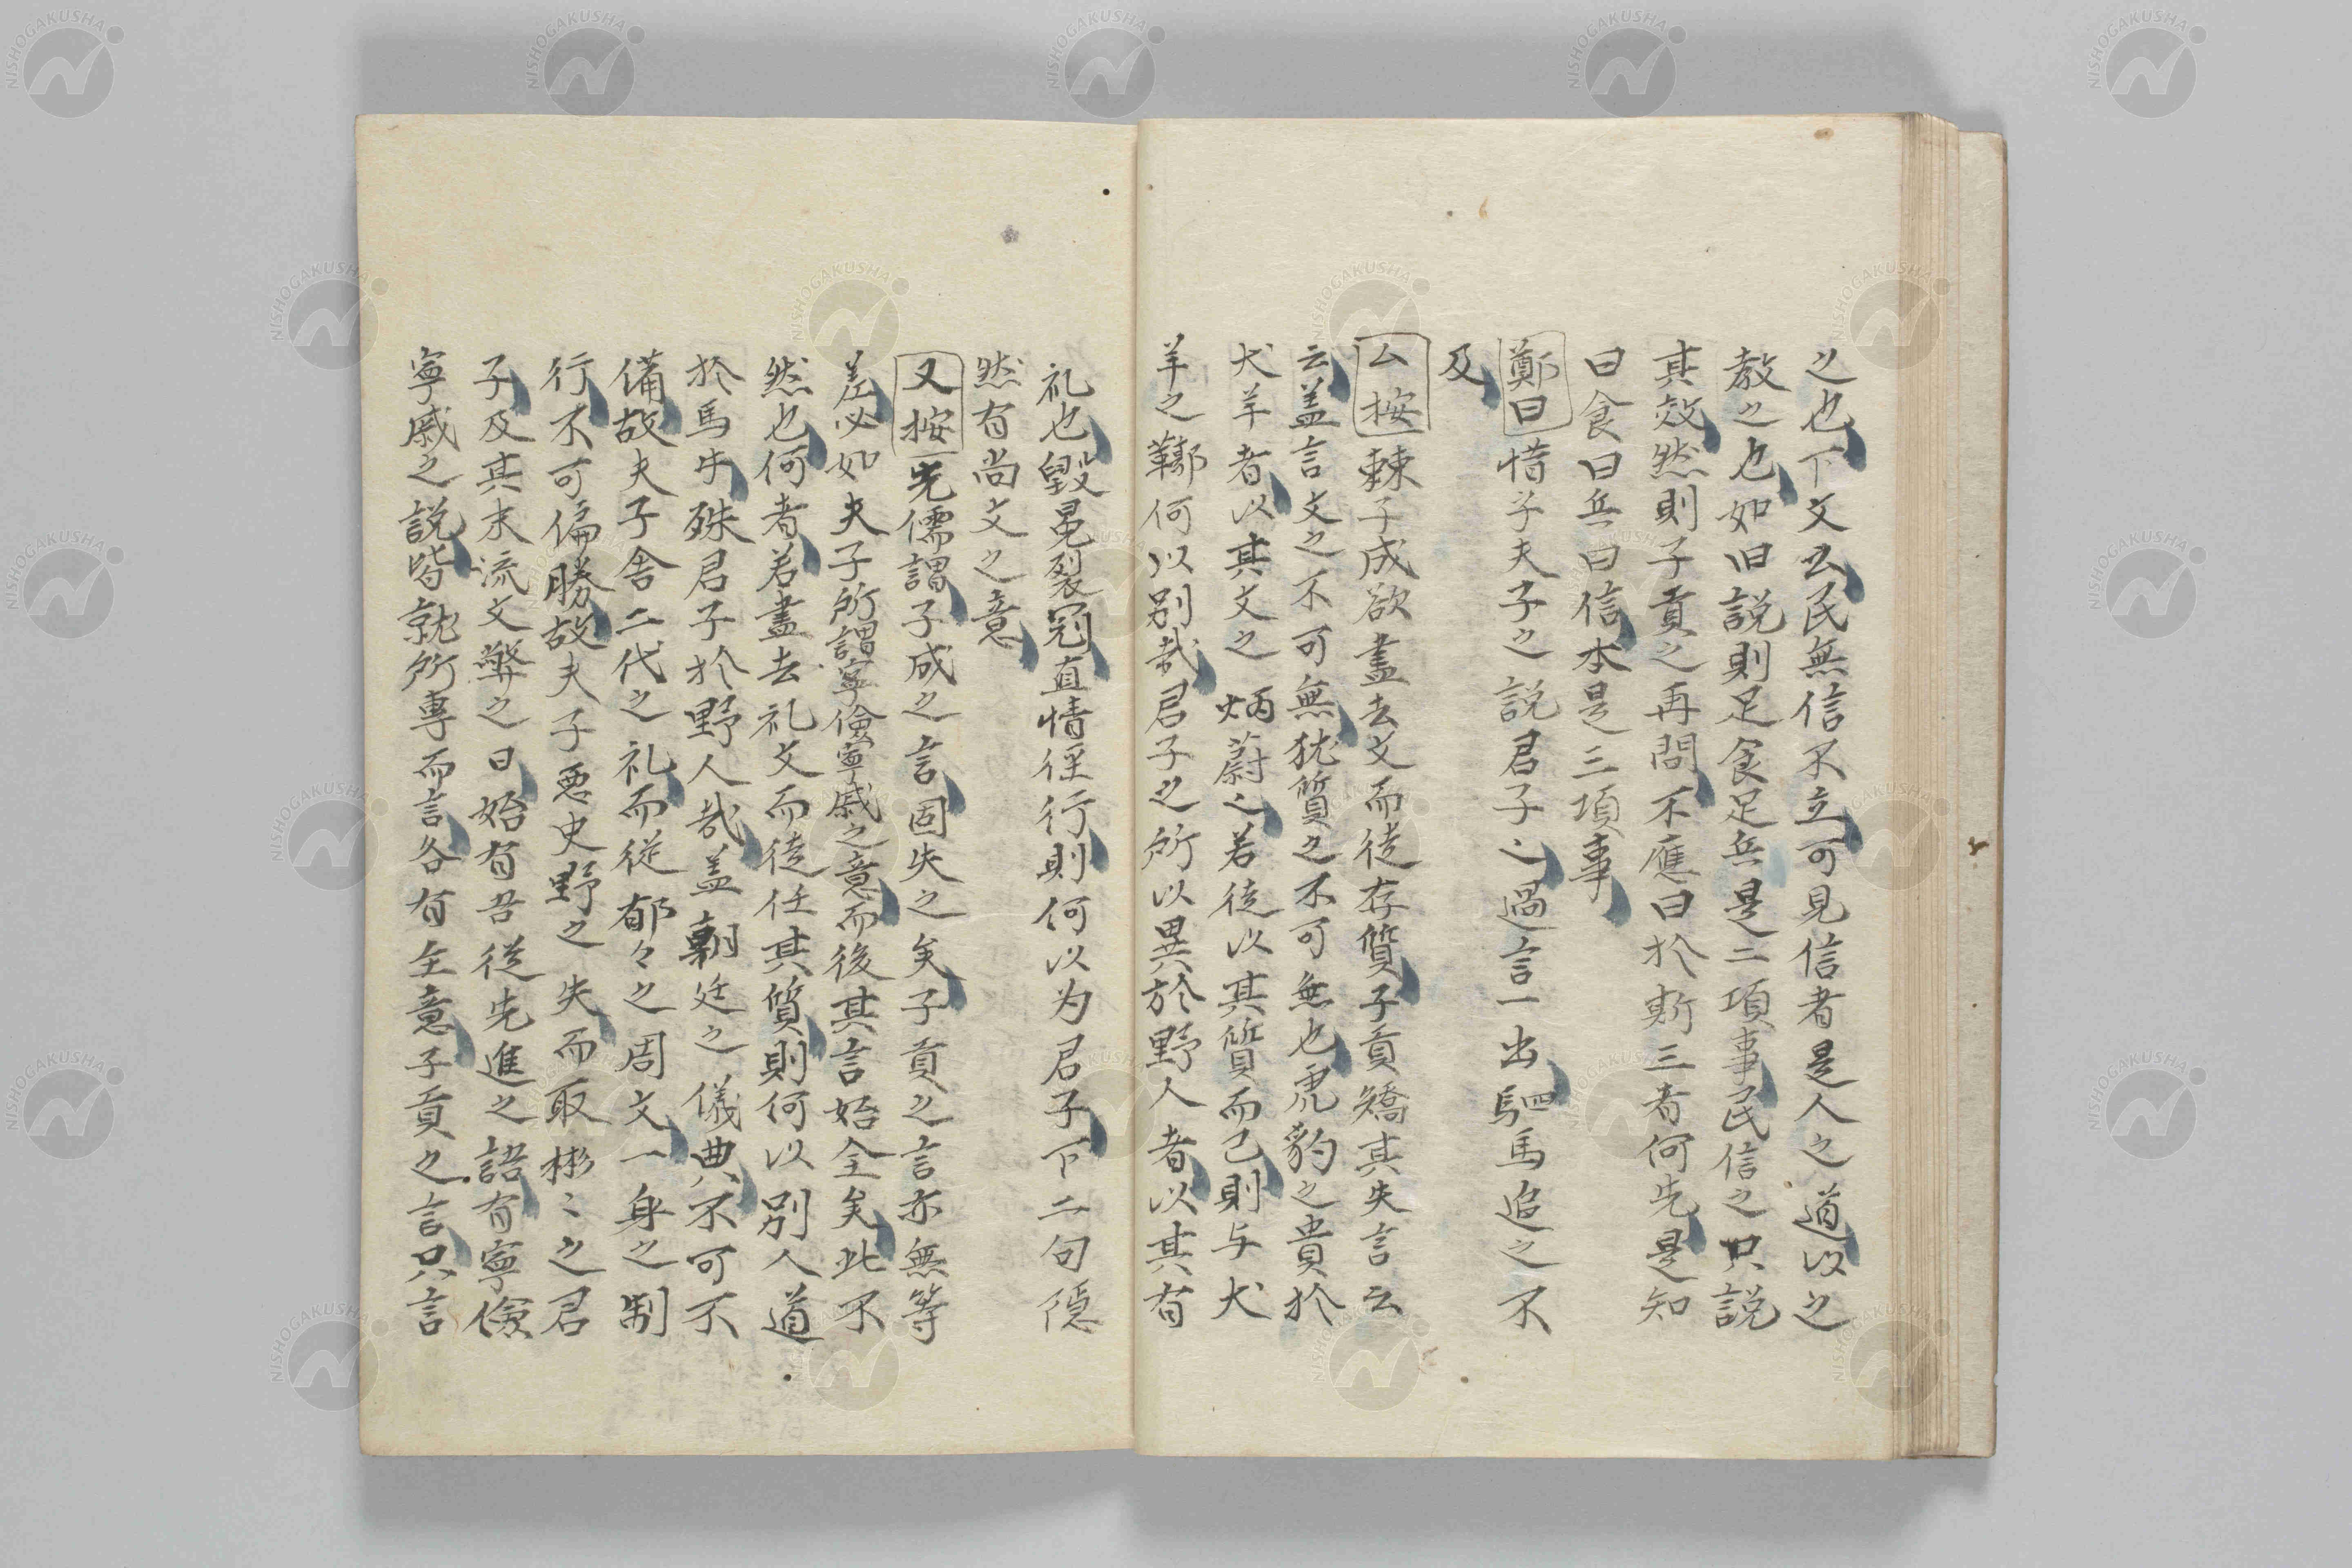 之也下文公民無信不立可見信者是人之道以之
教之也如旧説則足食足兵是二項事民信之只説
其效然則子貢之再問不應曰於斯三者何先是知
曰食曰兵曰信本是三項事
鄭曰惜乎夫子之説君子之過言一出駟馬追之不
及
厶按棘子成欲盡去文而徒存質子貢矯其失言云
云盖言文之不可無犹質之不可無也虎豹之貴於
犬羊者以其文之炳蔚之若徒以其質而已則与犬
羊之鞹何以別哉君子之所以異於野人者以其有
礼也毀冕裂冠直情径行則何以为君子下二句隠
然有尚文之意
又按先儒謂子成之言固失之矣子貢之言亦無等
差必如夫子所謂寧儉寧戚之意而後其言始全矣此不
然也何者若盡去礼文而徒任其質則何以別人道
於馬牛殊君子於野人哉盖朝廷之儀典不可不
備故夫子舎二代之礼而従郁々之周文一身之制
行不可偏勝故夫子悪史野之失而取彬〻之君
子及其末流文弊之日始有吾従先進之語有寧儉
寧戚之説皆就所專而言各有全意子貢之言只言
NISHOGAKUSHA